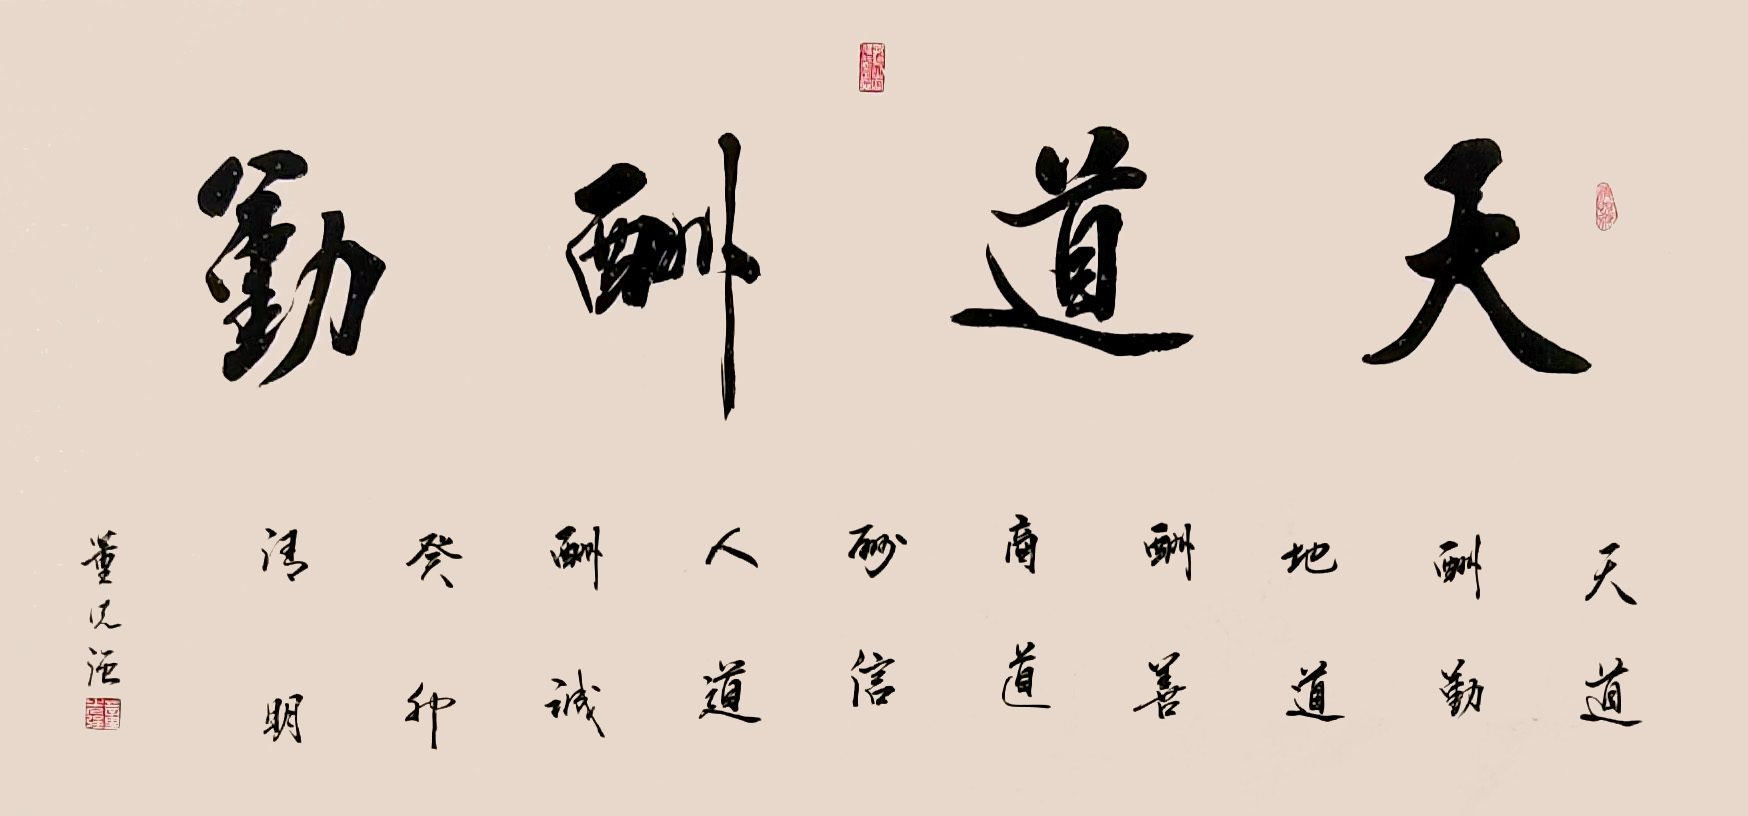 天道酬勤
天道
酬勤
地道
酬善
商道
酬信
人道
酬誠
癸卯
清明
董
强